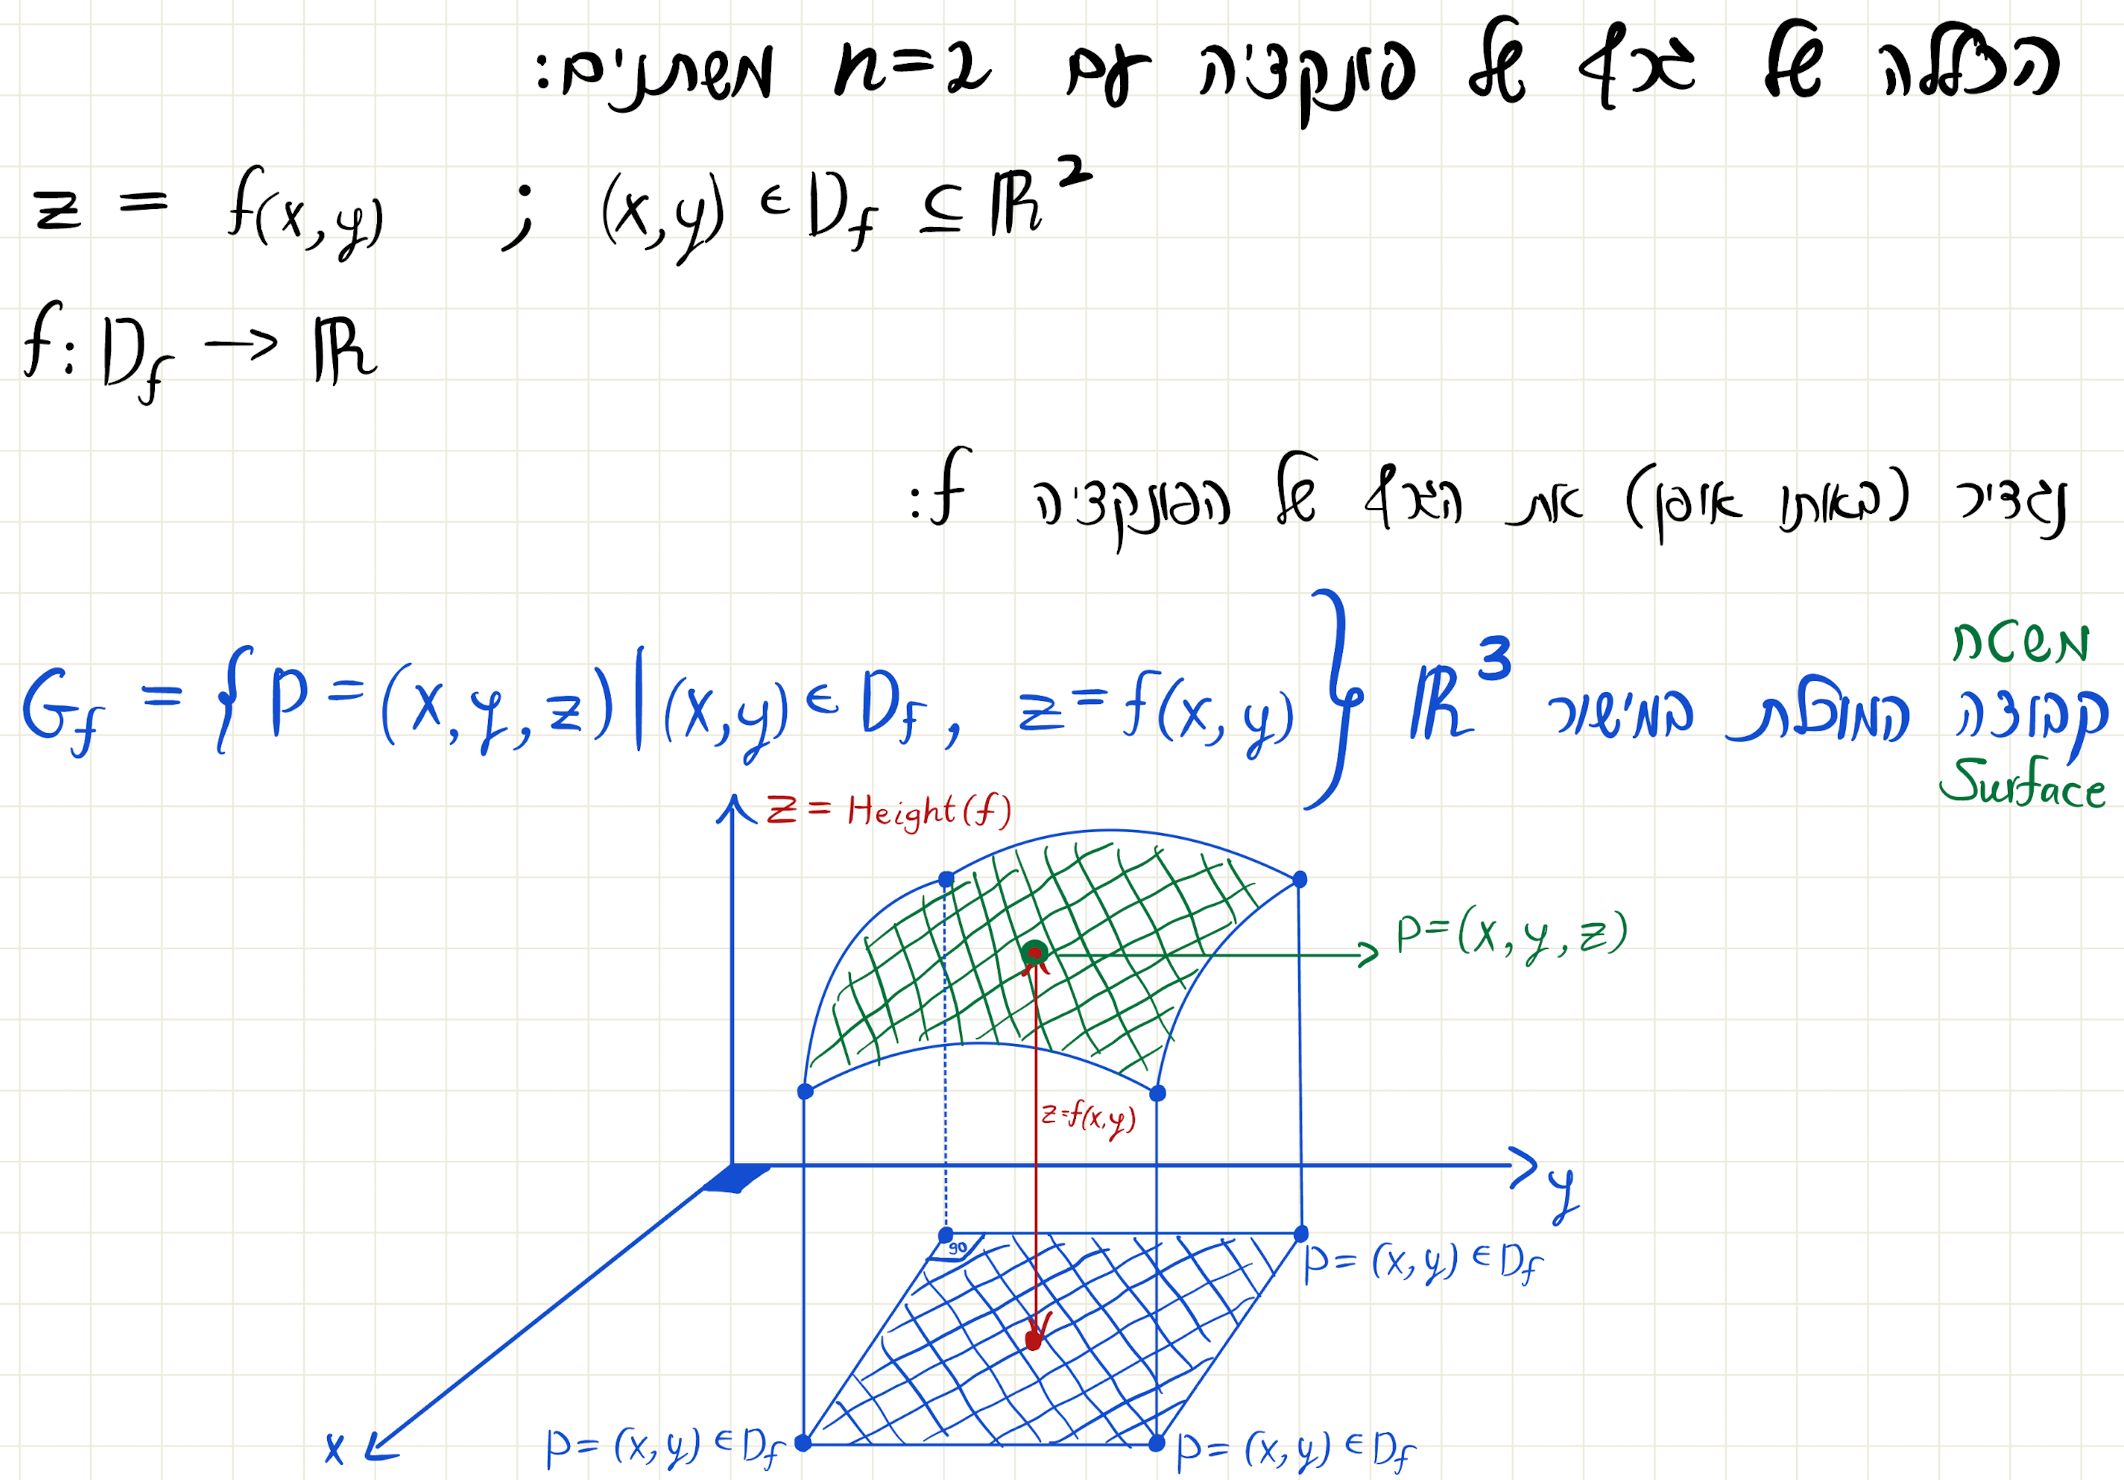 הכללה של גרף של פונקציה עם n=2 משתנים:
z = f(x,y) ; (x,y) ∈ D_f ⊆ ℝ²
f: D_f → ℝ
נגדיר (באותו אופן) את הגרף של הפונקציה f:
משטח
G_f = { P = (x,y,z) | (x,y) ∈ D_f, z = f(x,y) } ℝ³ קבוצה המוכלת במישור
Surface
z = Height(f)
P=(x,y,z)
z=f(x,y)
y
90
P=(x,y) ∈ D_f
x
P=(x,y) ∈ D_f
P=(x,y) ∈ D_f